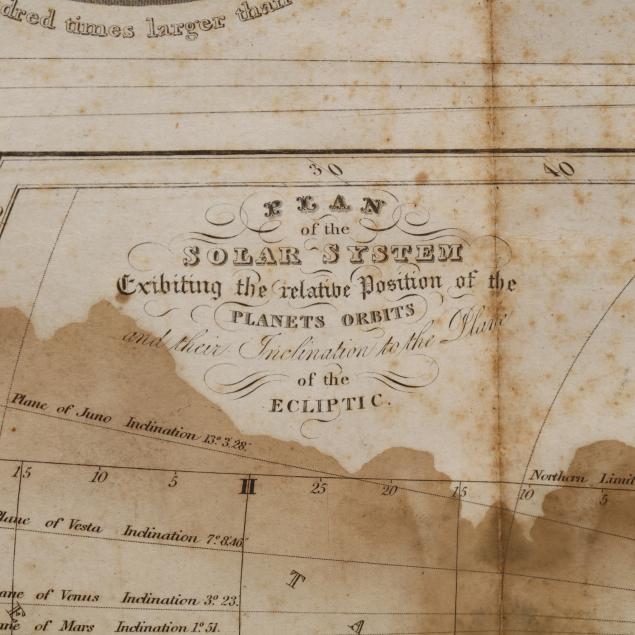 dred times larger than
30 40
PLAN
of the
SOLAR SYSTEM
Exibiting the relative Position of the
PLANETS ORBITS
and their Inclination to the Plane
of the
ECLIPTIC.
Plane of Juno Inclination 13° 3.28.
15 10 5 II 25 20 15 10 5
Northern Limit
lane of Vesta Inclination 7° 8.46.
ane of Venus Inclination 3° 23.
ane of Mars Inclination 1° 51.
T
A
E